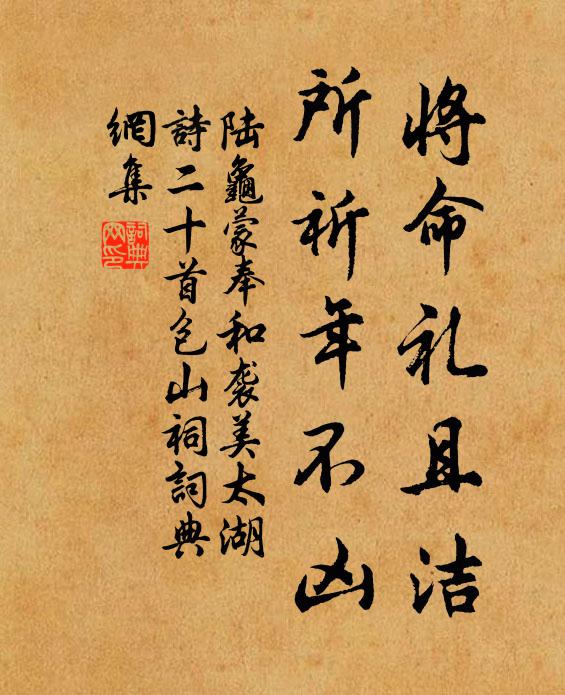 将命礼且洁
所祈年不凶
陆龜蒙奉和袭美太湖
詩二十首包山祠詞典
網集
詞典
网印